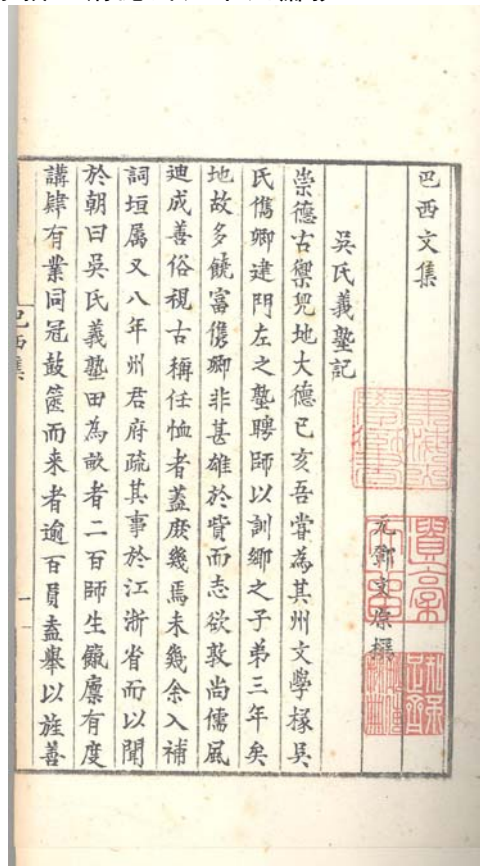 巴西文集
元鄧文原撰
吳氏義塾記
崇德古禦兒地大德已亥吾嘗為其州文學掾吳
氏儁卿建門左之塾聘師以訓鄉之子弟三年矣
地故多饒富儁卿非甚雄於貲而志欲敦尚儒風
迪成善俗視古稱任恤者蓋庶幾焉未幾余入補
詞垣属又八年州君府疏其事於江浙省而以聞
於朝曰吳氏義塾田為畝者二百師生餼廩有度
講肄有業同冠鼓篋而来者逾百員盍舉以旌善
巴西集
一